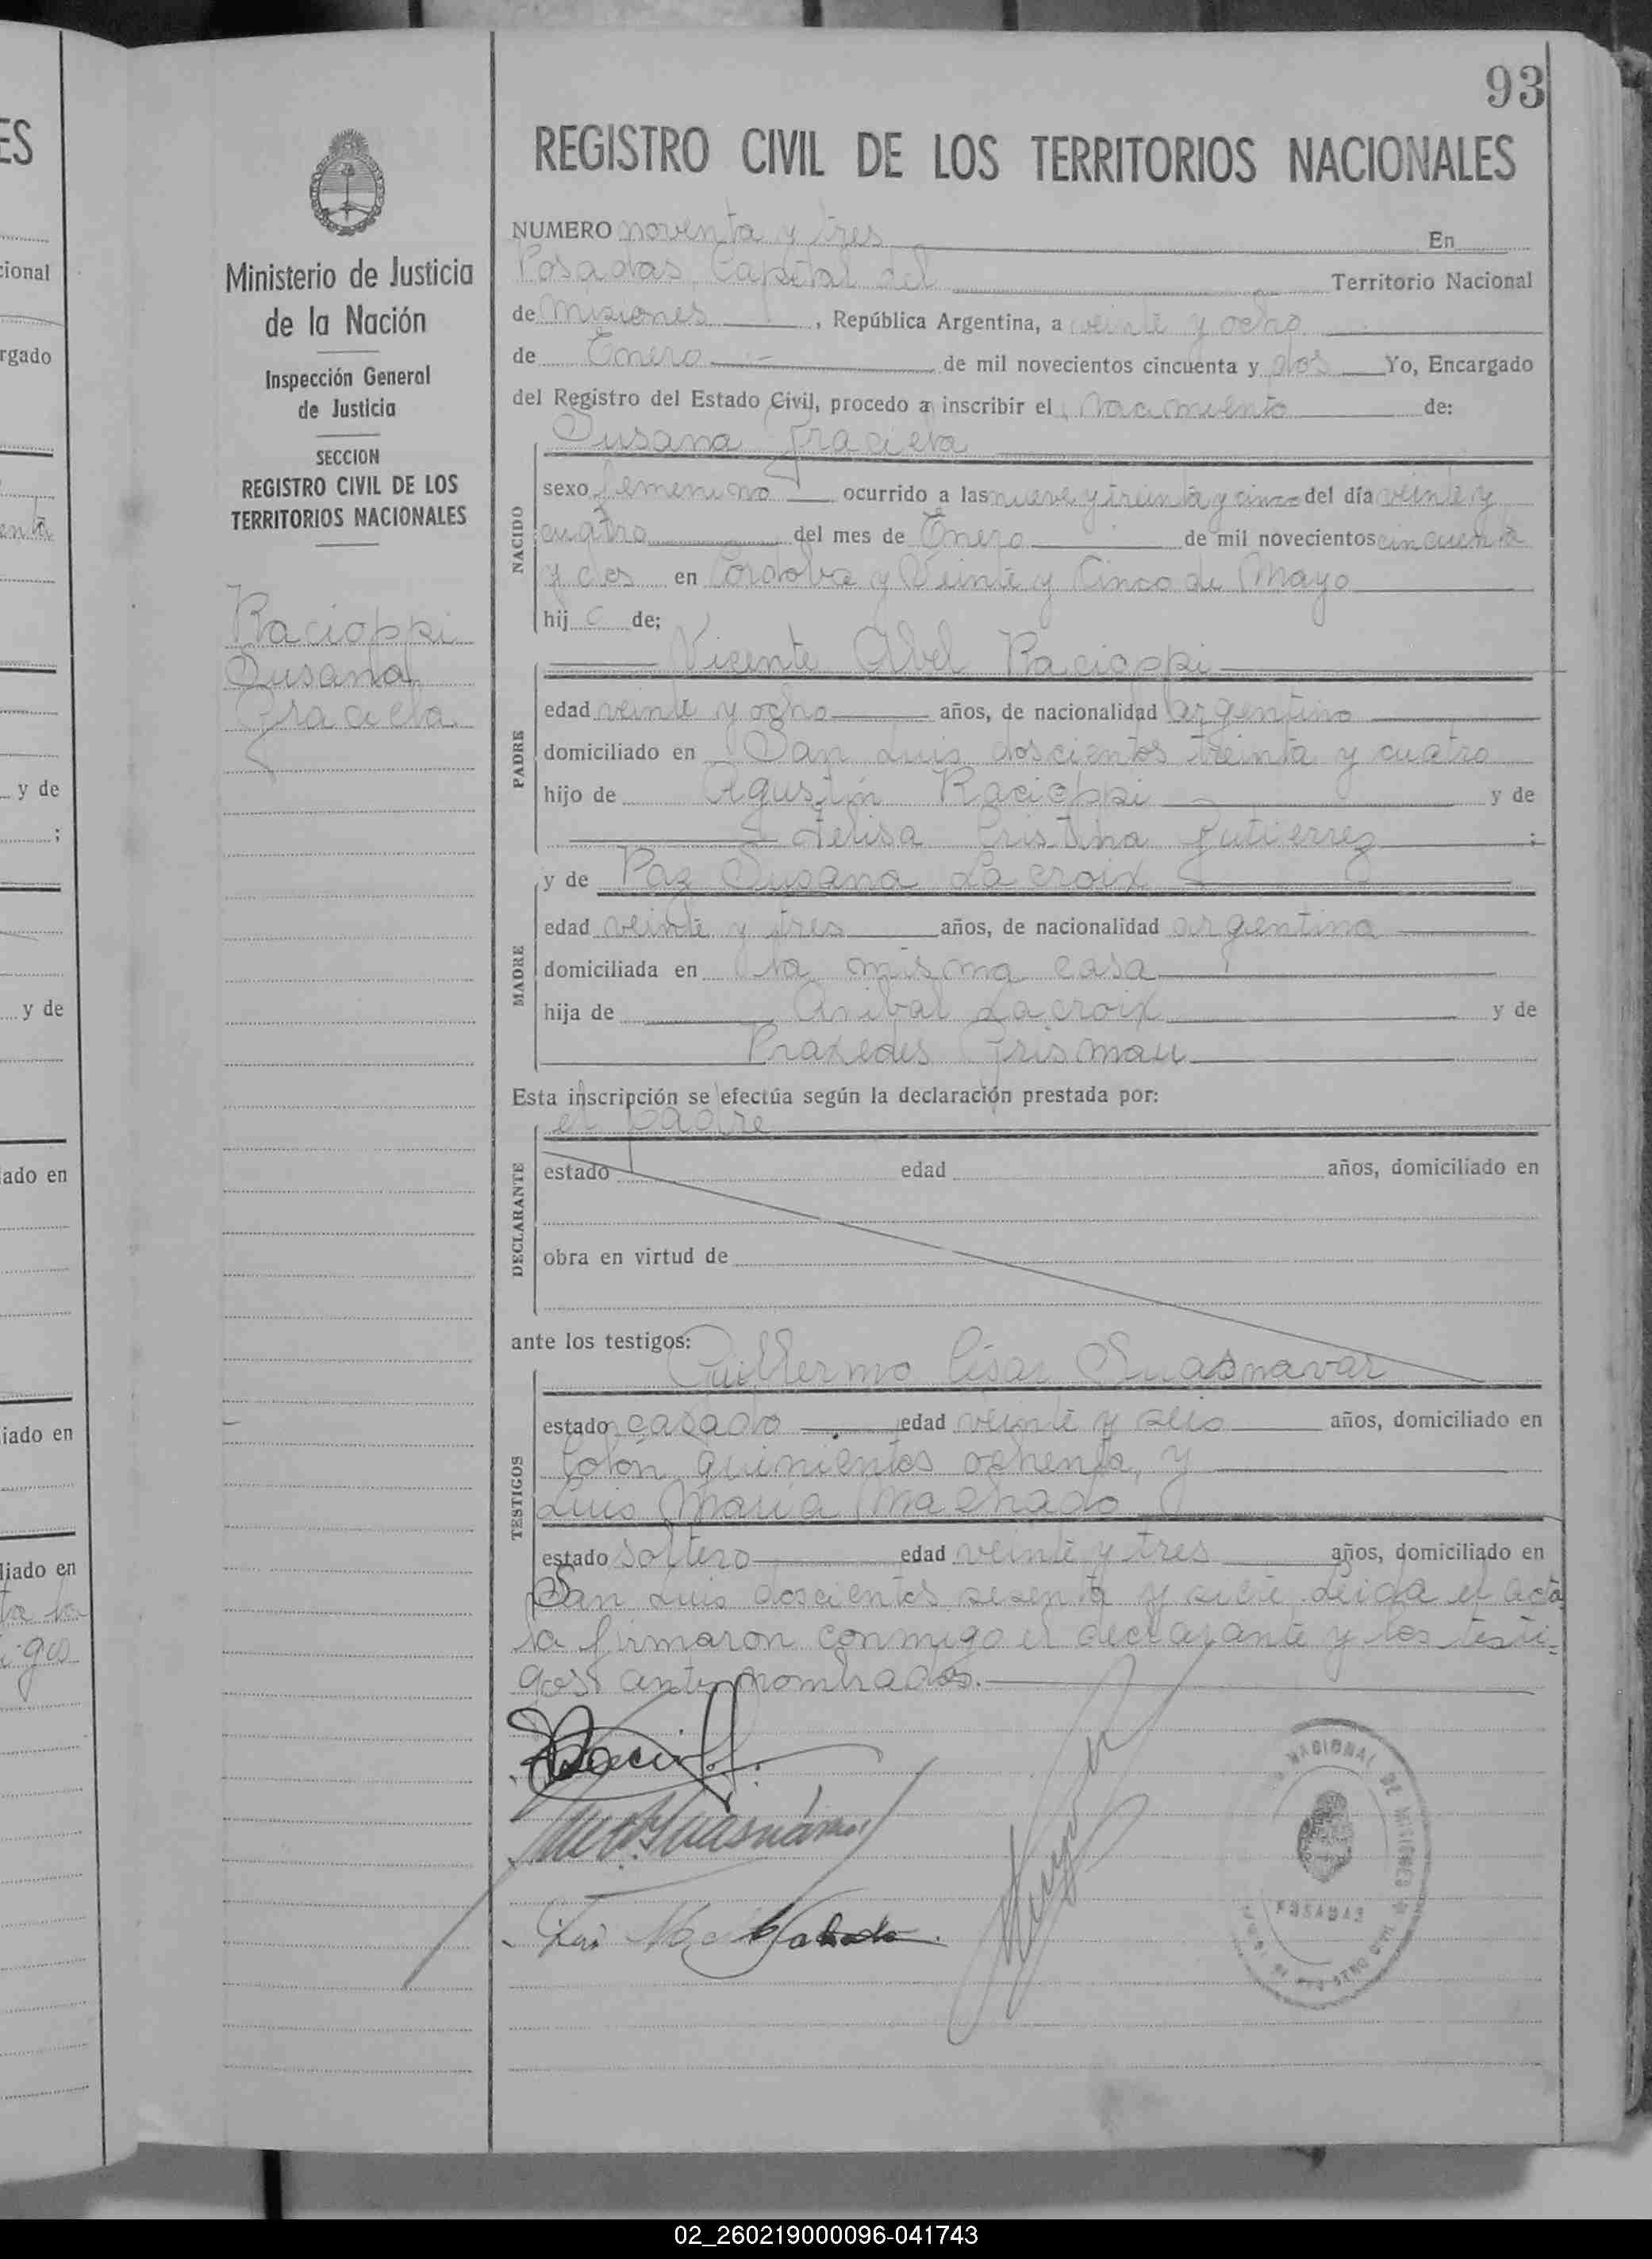 93
REGISTRO CIVIL DE LOS TERRITORIOS NACIONALES
Ministerio de Justicia
de la Nación
Inspección General
de Justicia
SECCION
REGISTRO CIVIL DE LOS
TERRITORIOS NACIONALES
Racioppi
Susana
Graciela
NUMERO noventa y tres En
Posadas, Capital del Territorio Nacional
de Misiones, República Argentina, a veinte y ocho
de Enero de mil novecientos cincuenta y dos Yo, Encargado
del Registro del Estado Civil, procedo a inscribir el nacimiento de:
Susana Graciela
NACIDO
sexo femenino ocurrido a las nueve y treinta y cinco del día veinte y
cuatro del mes de Enero de mil novecientos cincuenta
y dos en Córdoba y Veinte y Cinco de Mayo
hij a de;
Vicente Abel Racioppi
PADRE
edad veinte y ocho años, de nacionalidad argentino
domiciliado en San Luis doscientos treinta y cuatro
hijo de Agustín Racioppi y de
Felisa Cristina Gutierrez ;
y de Paz Susana Lacroix
MADRE
edad veinte y tres años, de nacionalidad argentina
domiciliada en la misma casa
hija de Anibal Lacroix y de
Praxedes Grismau
Esta inscripción se efectúa según la declaración prestada por:
el padre
DECLARANTE
estado edad años, domiciliado en
obra en virtud de
ante los testigos:
Guillermo César Guasnavar
TESTIGOS
estado casado edad veinte y seis años, domiciliado en
Colón quinientos ochenta, y
Luis María Machado
estado soltero edad veinte y tres años, domiciliado en
San Luis doscientos sesenta y siete. Leida el acta
la firmaron conmigo el declarante y los testi-
gos antes nombrados.
NACIONAL DE MISIONES
POSADAS
02_260219000096-041743